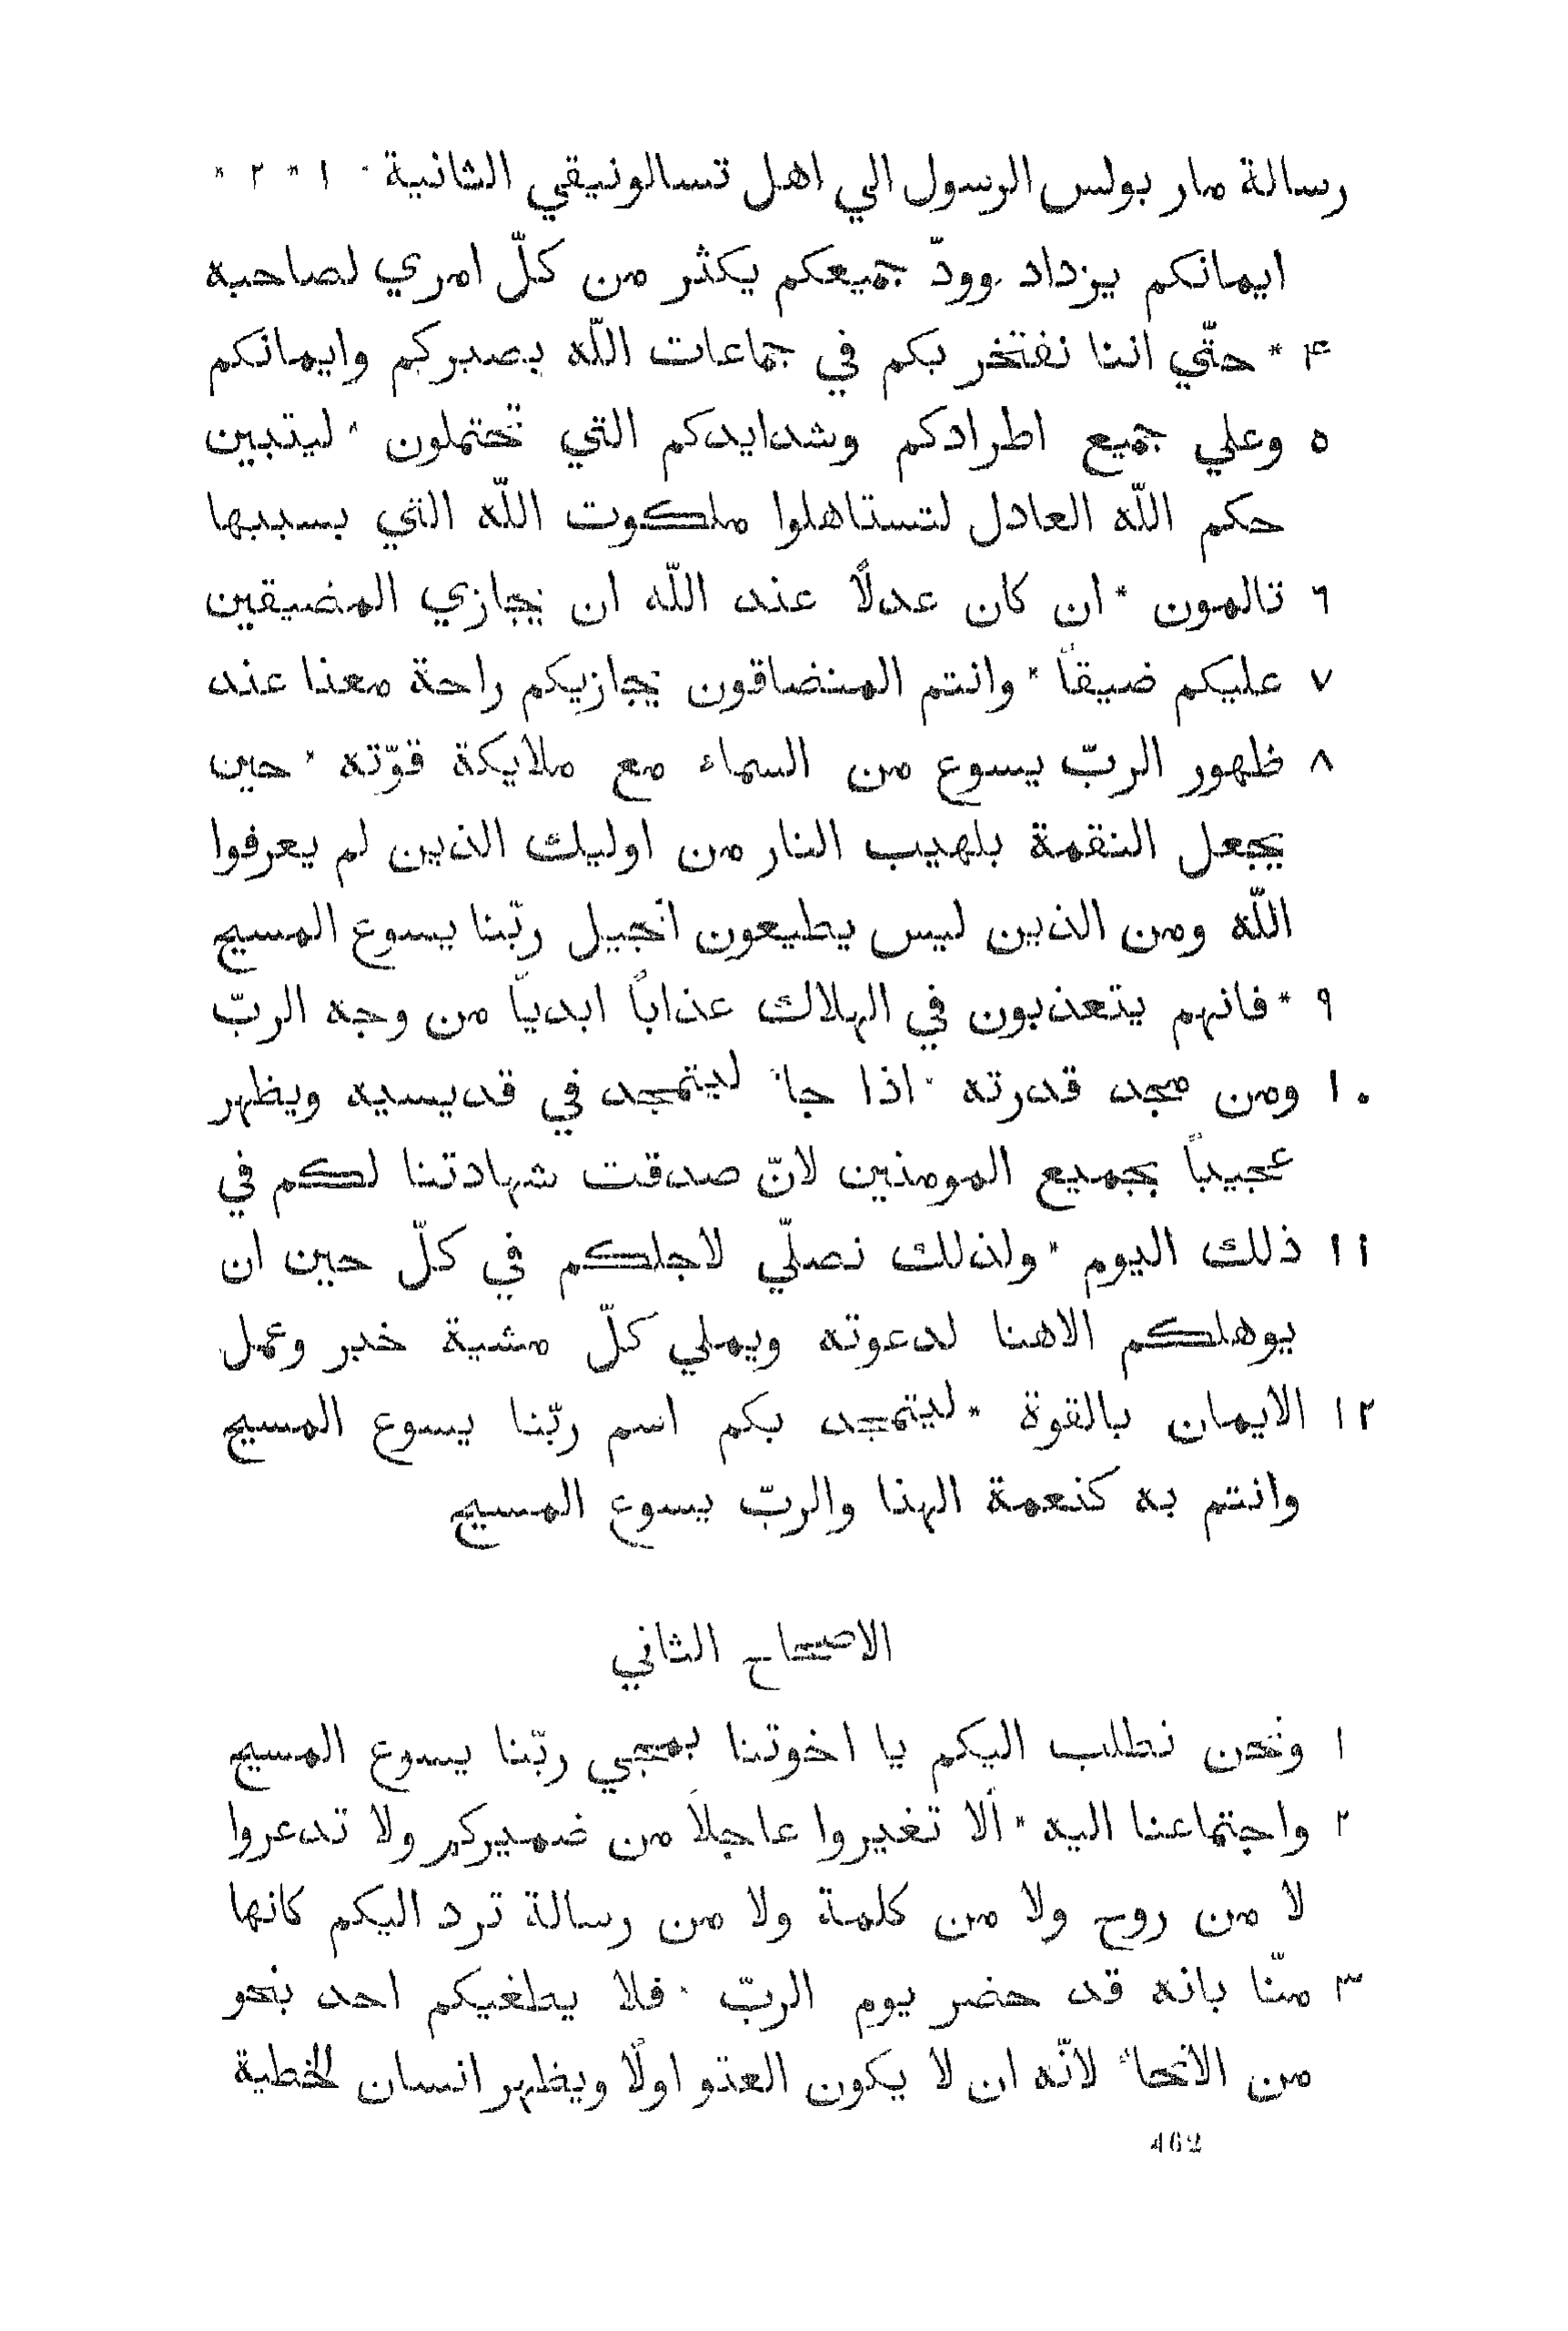 رسالة مار بولس الرسول الي اهل تسالونيقي الثانية * ١ * ٢ *
ايمانكم يزداد وودّ جميعكم يكثر من كلّ امري لصاحبه
۴ * حتّي اننا نفتخر بكم في جماعات اللّه بصبركم وايمانكم
٥ وعلي جميع اطرادكم وشدايدكم التي تحتملون * ليتبين
حكم اللّه العادل لتستاهلوا ملكوت اللّه التي بسببها
٦ تالمون * ان كان عدلًا عند اللّه ان يجازي المضيقين
٧ عليكم ضيقاً * وانتم المنضاقون يجازيكم راحة معنا عند
٨ ظهور الربّ يسوع من السماء مع ملايكة قوّته * حين
يجعل النقمة بلهيب النار من اوليك الذين لم يعرفوا
اللّه ومن الذين ليس يطيعون انجيل ربّنا يسوع المسيح
٩ * فانهم يتعذبون في الهلاك عذاباً ابدياً من وجه الربّ
١٠ ومن مجد قدرته * اذا جاء ليتمجد في قديسيه ويظهر
عجيباً بجميع المومنين لانّ صدقت شهادتنا لكم في
١١ ذلك اليوم * ولذلك نصلّي لاجلكم في كلّ حين ان
يوهلكم الاهنا لدعوته ويملي كلّ مشية خير وعمل
١٢ الايمان بالقوة * ليتمجد بكم اسم ربّنا يسوع المسيح
وانتم به كنعمة الهنا والربّ يسوع المسيح
الاصحاح الثاني
١ ونحن نطلب اليكم يا اخوتنا بمجي ربّنا يسوع المسيح
٢ واجتماعنا اليه * ألا تغيروا عاجلاً من ضميركم ولا تدعروا
لا من روح ولا من كلمة ولا من رسالة ترد اليكم كانها
٣ منّا بانه قد حضر يوم الربّ * فلا يطغيكم احد بنحو
من الانحاء لانّه ان لا يكون العتو اولًا ويظهر انسان الخطية
462